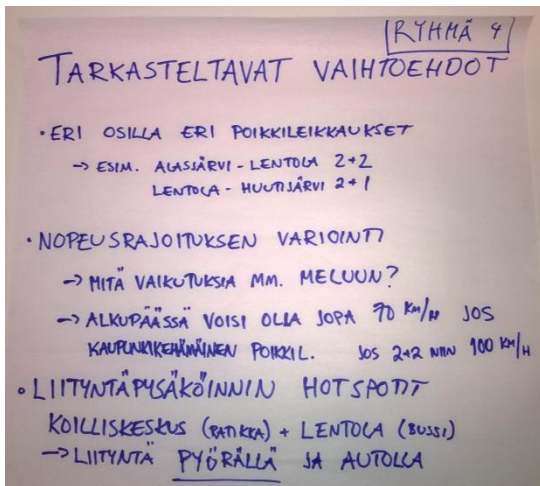 RYHMÄ 4
TARKASTELTAVAT VAIHTOEHDOT
• ERI OSILLA ERI POIKKILEIKKAUKSET
→ ESIM. ALASJÄRVI - LENTOLA 2+2
LENTOLA - HUUTIJÄRVI 2+1
• NOPEUSRAJOITUKSEN VARIOINTI
→ MITÄ VAIKUTUKSIA MM. MELUUN?
→ ALKUPÄÄSSÄ VOISI OLLA JOPA 70 KM/H JOS
KAUPUNKIKEHÄMÄINEN POIKKIL. JOS 2+2 NIIN 100 KM/H
• LIITYNTÄPYSÄKÖINNIN HOTSPOTIT
KOILLISKESKUS (RATIKKA) + LENTOLA (BUSSI)
→ LIITYNTÄ PYÖRÄLLÄ JA AUTOLLA